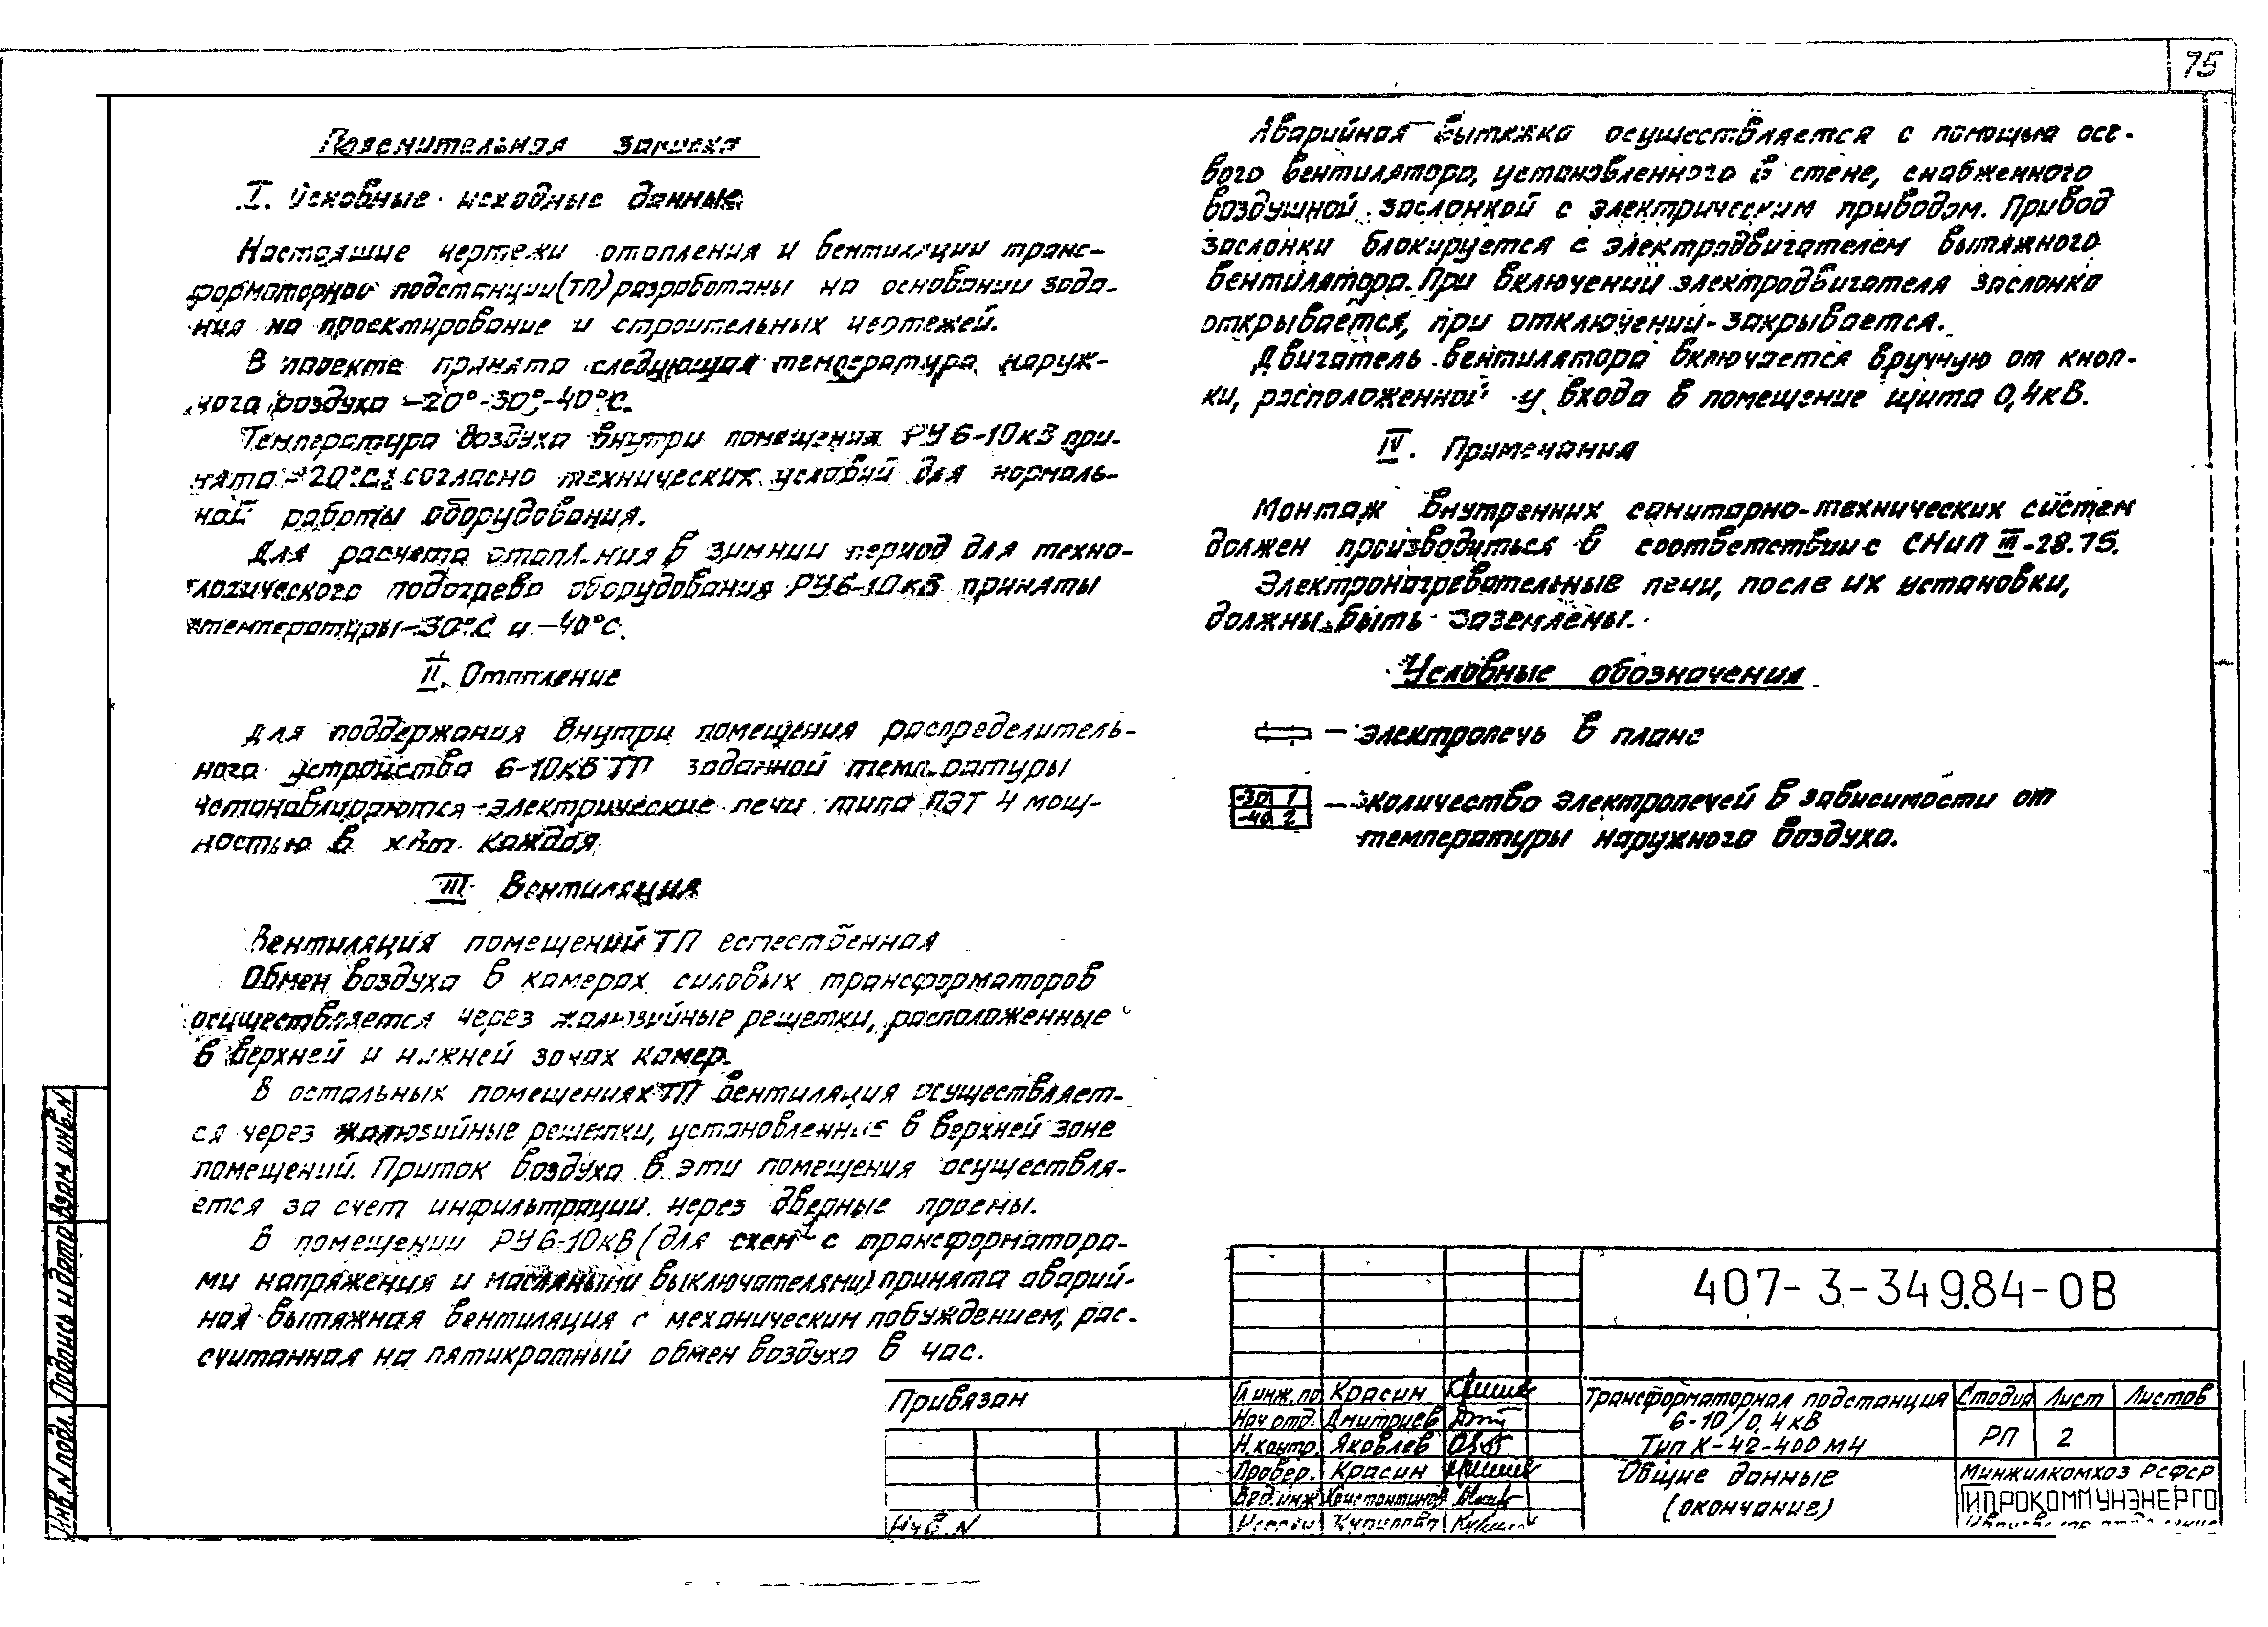 75
Пояснительная записка
I. Основные исходные данные
Настоящие чертежи отопления и вентиляции транс-
форматорной подстанции (ТП) разработаны на основании зада-
ния на проектирование и строительных чертежей.
В проекте принята следующая температура наруж-
ного воздуха -20°-30°-40°С.
Температура воздуха внутри помещения РУ 6-10кВ при-
нята -20°С согласно технических условий для нормаль-
ной работы оборудования.
Для расчета отопления в зимний период для техно-
логического подогрева оборудования РУ6-10кВ приняты
температуры -30°С и -40°С.
II. Отопление
Для поддержания внутри помещения распределитель-
ного устройства 6-10кВ ТП заданной температуры
устанавливаются электрические печи типа ПЭТ 4 мощ-
ностью в кВт каждая
III Вентиляция
Вентиляция помещений ТП естественная
Обмен воздуха в камерах силовых трансформаторов
осуществляется через жалюзийные решетки, расположенные
в верхней и нижней зонах камер.
В остальных помещениях ТП вентиляция осуществляет-
ся через жалюзийные решетки, установленные в верхней зоне
помещений. Приток воздуха в эти помещения осуществля-
ется за счет инфильтрации через дверные проемы.
В помещении РУ6-10кВ (для схем с трансформатора-
ми напряжения и масляными выключателями) принята аварий-
ная вытяжная вентиляция с механическим побуждением, рас-
считанная на пятикратный обмен воздуха в час.
Аварийная вытяжка осуществляется с помощью осе-
вого вентилятора, установленного в стене, снабженного
воздушной заслонкой с электрическим приводом. Привод
заслонки блокируется с электродвигателем вытяжного
вентилятора. При включении электродвигателя заслонка
открывается, при отключении - закрывается.
Двигатель вентилятора включается вручную от кноп-
ки, расположенной у входа в помещение щита 0,4кВ.
IV. Примечания
Монтаж внутренних санитарно-технических систем
должен производиться в соответствии с СНиП III-28.75.
Электронагревательные печи, после их установки,
должны быть заземлены.
Условные обозначения
– электропечь в плане
-30 1
-40 2
– количество электропечей в зависимости от
температуры наружного воздуха.
Взам инв. N
Подпись и дата
Инв. N подл.
407-3-349.84-ОВ
Привязан
Инв. N
Гл инж. пр Красин
Нач отд. Дмитриев
Н. контр. Яковлев
Провер. Красин
Вед. инж Константинов
Трансформаторная подстанция
6-10/0,4кВ
Тип К-42-400 М4
Стадия Лист Листов
РП 2
Общие данные
(окончание)
Минжилкомхоз РСФСР
ГИПРОКОММУНЭНЕРГО